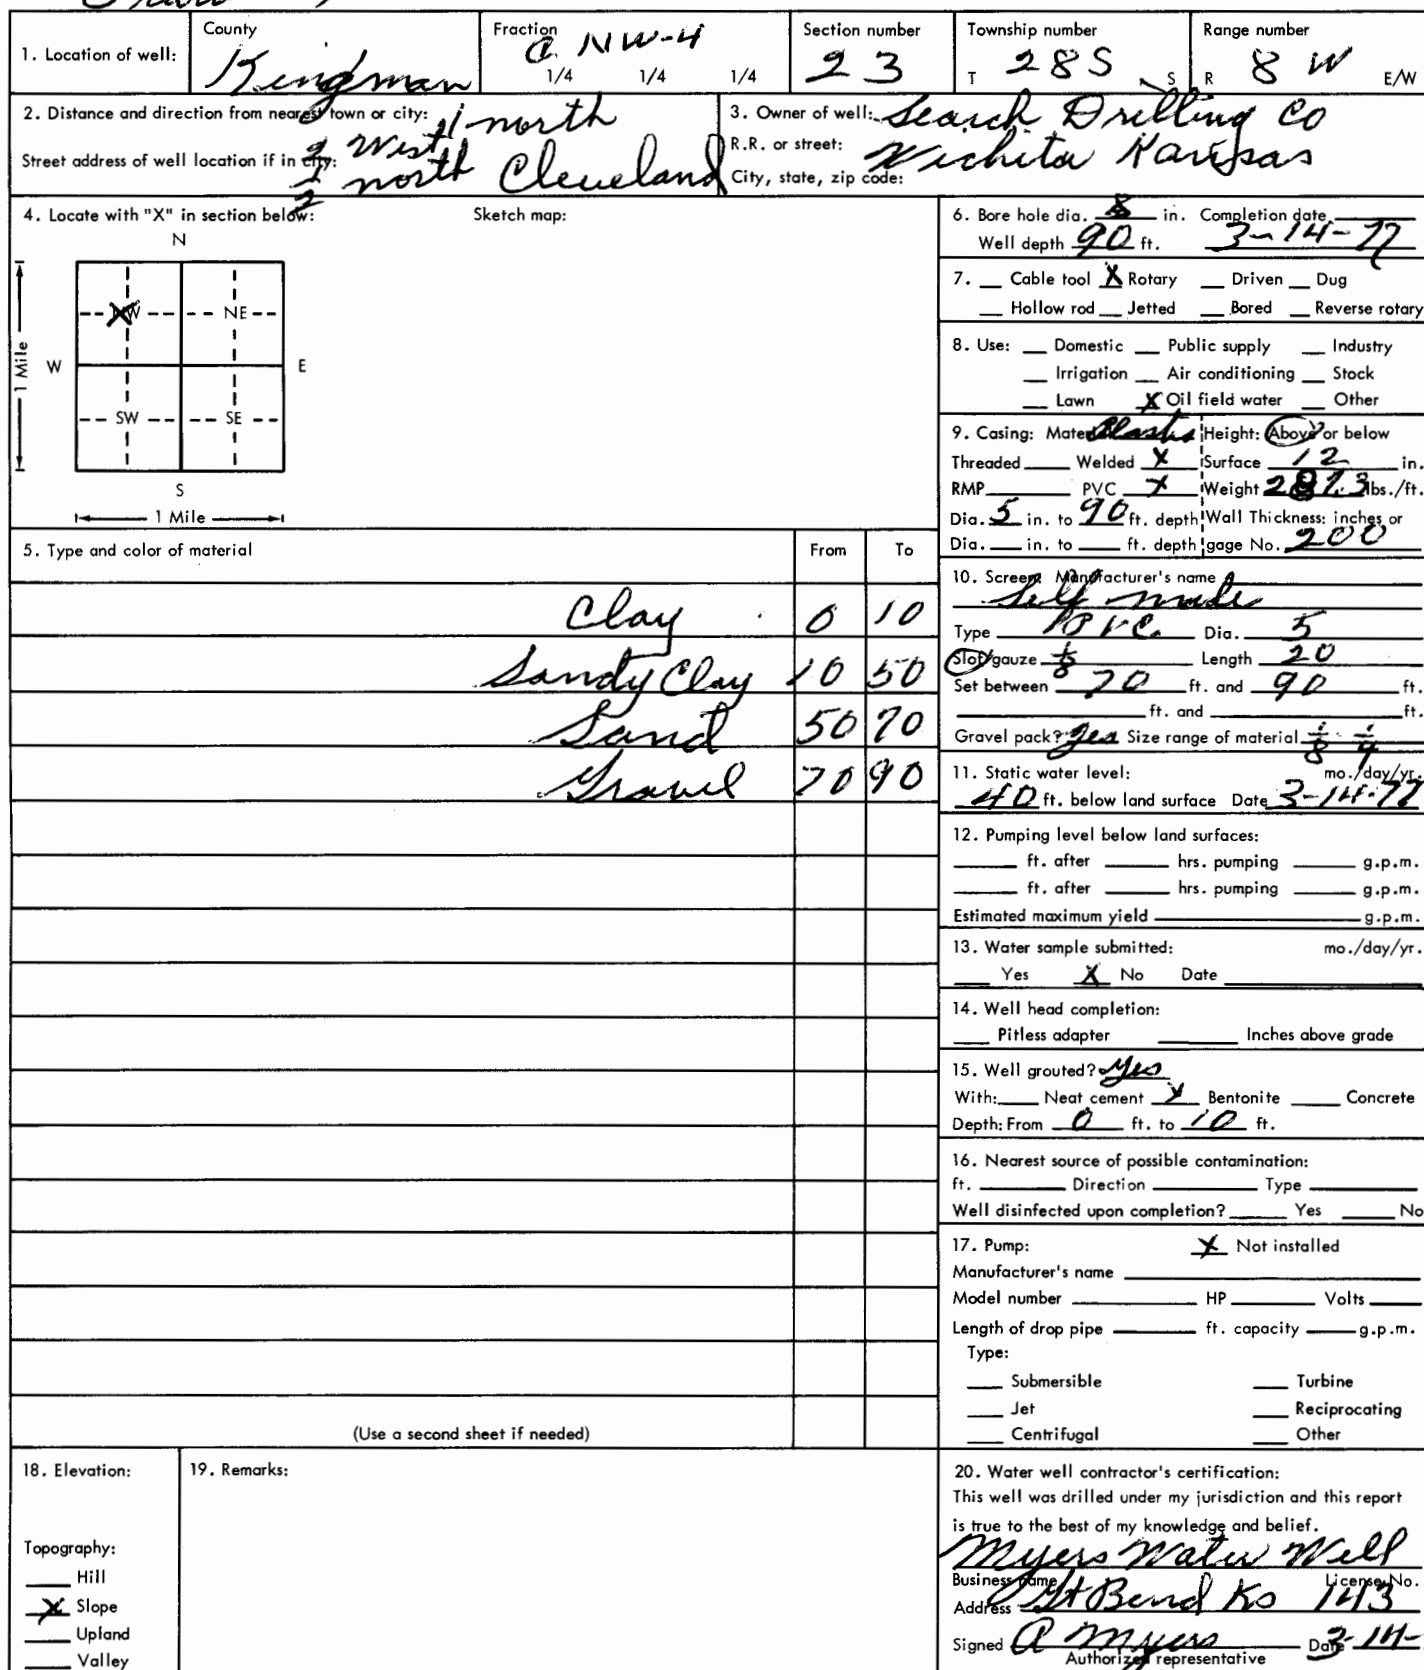 County Fraction Section number Township number Range number
1. Location of well: Kingman C NW-4 1/4 1/4 1/4 23 T 28S S R 8 W E/W
2. Distance and direction from nearest town or city: 1 north
West
Street address of well location if in city:
1/2 north Cleveland
3. Owner of well: Search Drilling Co
R.R. or street:
Wichita Kansas
City, state, zip code:
4. Locate with "X" in section below: Sketch map:
N
X NW NE
W E
SW SE
S
1 Mile
1 Mile
5. Type and color of material From To
Clay 0 10
Sandy Clay 10 50
Sand 50 70
Gravel 70 90
(Use a second sheet if needed)
6. Bore hole dia. 8 in. Completion date
Well depth 90 ft. 3-14-77
7. __ Cable tool X Rotary __ Driven __ Dug
__ Hollow rod __ Jetted __ Bored __ Reverse rotary
8. Use: __ Domestic __ Public supply __ Industry
__ Irrigation __ Air conditioning __ Stock
__ Lawn X Oil field water __ Other
9. Casing: Material Plastic Height: Above or below
Threaded ____ Welded X Surface 12 in.
RMP ____ PVC X Weight lbs./ft.
Dia. 5 in. to 90 ft. depth Wall Thickness: inches or
Dia. __ in. to __ ft. depth gage No. 200
10. Screen: Manufacturer's name
Self made
Type PVC Dia. 5
Slot/gauze 1/8 Length 20
Set between 70 ft. and 90 ft.
____ ft. and ____ ft.
Gravel pack? yes Size range of material 1/8 1/4
11. Static water level: mo./day/yr.
40 ft. below land surface Date 3-14-77
12. Pumping level below land surfaces:
____ ft. after ____ hrs. pumping ____ g.p.m.
____ ft. after ____ hrs. pumping ____ g.p.m.
Estimated maximum yield ____ g.p.m.
13. Water sample submitted: mo./day/yr.
__ Yes X No Date ____
14. Well head completion:
__ Pitless adapter ____ Inches above grade
15. Well grouted? yes
With: __ Neat cement X Bentonite __ Concrete
Depth: From 0 ft. to 10 ft.
16. Nearest source of possible contamination:
ft. ____ Direction ____ Type ____
Well disinfected upon completion? ____ Yes ____ No
17. Pump: X Not installed
Manufacturer's name ____
Model number ____ HP ____ Volts ____
Length of drop pipe ____ ft. capacity ____ g.p.m.
Type:
__ Submersible __ Turbine
__ Jet __ Reciprocating
__ Centrifugal __ Other
18. Elevation:
Topography:
__ Hill
X Slope
__ Upland
__ Valley
19. Remarks:
20. Water well contractor's certification:
This well was drilled under my jurisdiction and this report
is true to the best of my knowledge and belief.
Myers Water Well
Business name License No.
Address Gt Bend Ks 143
Signed A Myers Date 3-14-
Authorized representative